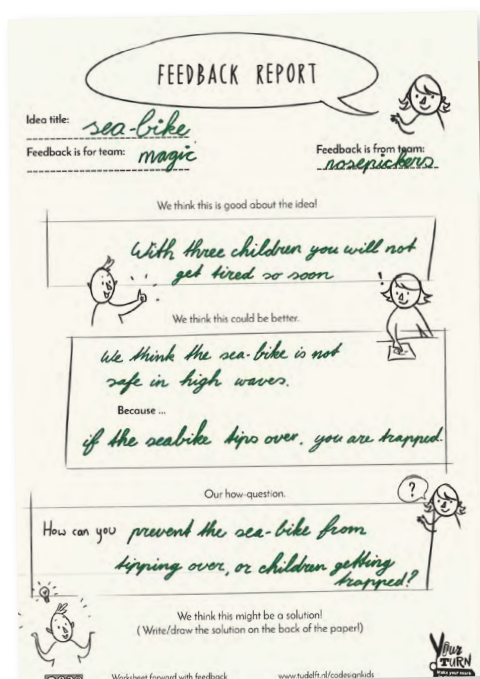 FEEDBACK REPORT
Idea title: sea-bike
Feedback is for team: magic
Feedback is from team:
nosepickers
We think this is good about the idea!
With three children you will not
get tired so soon
!
We think this could be better.
We think the sea-bike is not
safe in high waves.
Because ...
if the seabike tips over, you are trapped.
?
Our how-question.
How can you prevent the sea-bike from
tipping over, or children getting
trapped?
We think this might be a solution!
(Write/draw the solution on the back of the paper!)
YOUR
TURN
Make your mark
Worksheet forward with feedback www.tudelft.nl/codesignkids